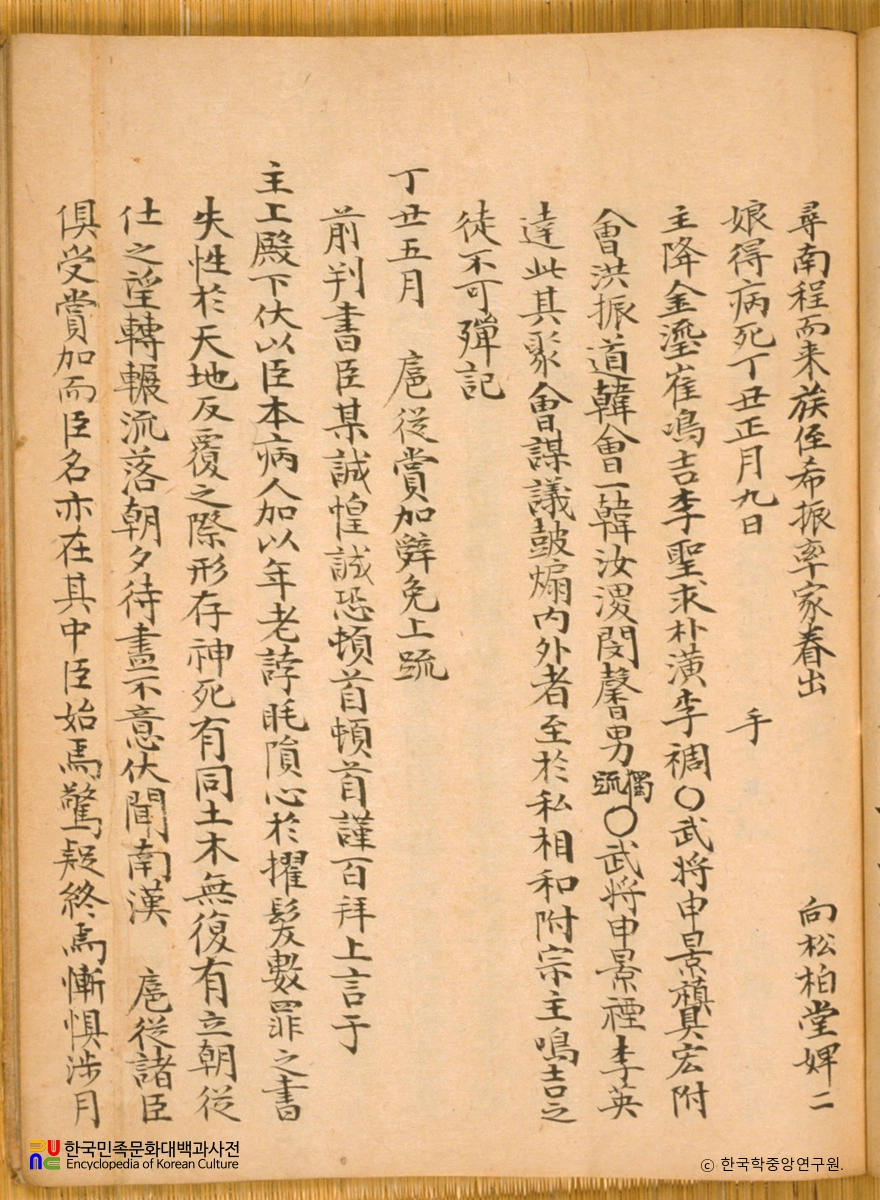 尋南程而来族侄希振率家眷出 向松柏堂婢二
娘得病死丁丑正月九日 手
主降金瑬崔鳴吉李聖求朴潢李裯〇武将申景禛具宏附
會洪振道韓會一韓汝溭閔馨男獨疏〇武将申景禋李英
達此其聚會謀議鼓煽内外者至於私相和附宗主鳴吉之
徒不可殫記
丁丑五月 扈従賞加辭免上疏
前判書臣某誠惶誠恐頓首頓首謹百拜上言于
主上殿下伏以臣本病人加以年老誖眊隕心於擢髪數罪之書
失性於天地反覆之際形存神死有同土木無復有立朝従
仕之望轉輾流落朝夕待盡不意伏聞南漢 扈従諸臣
俱受賞加而臣名亦在其中臣始焉驚疑終焉慚惧涉月
한국민족문화대백과사전
Encyclopedia of Korean Culture
ⓒ 한국학중앙연구원.